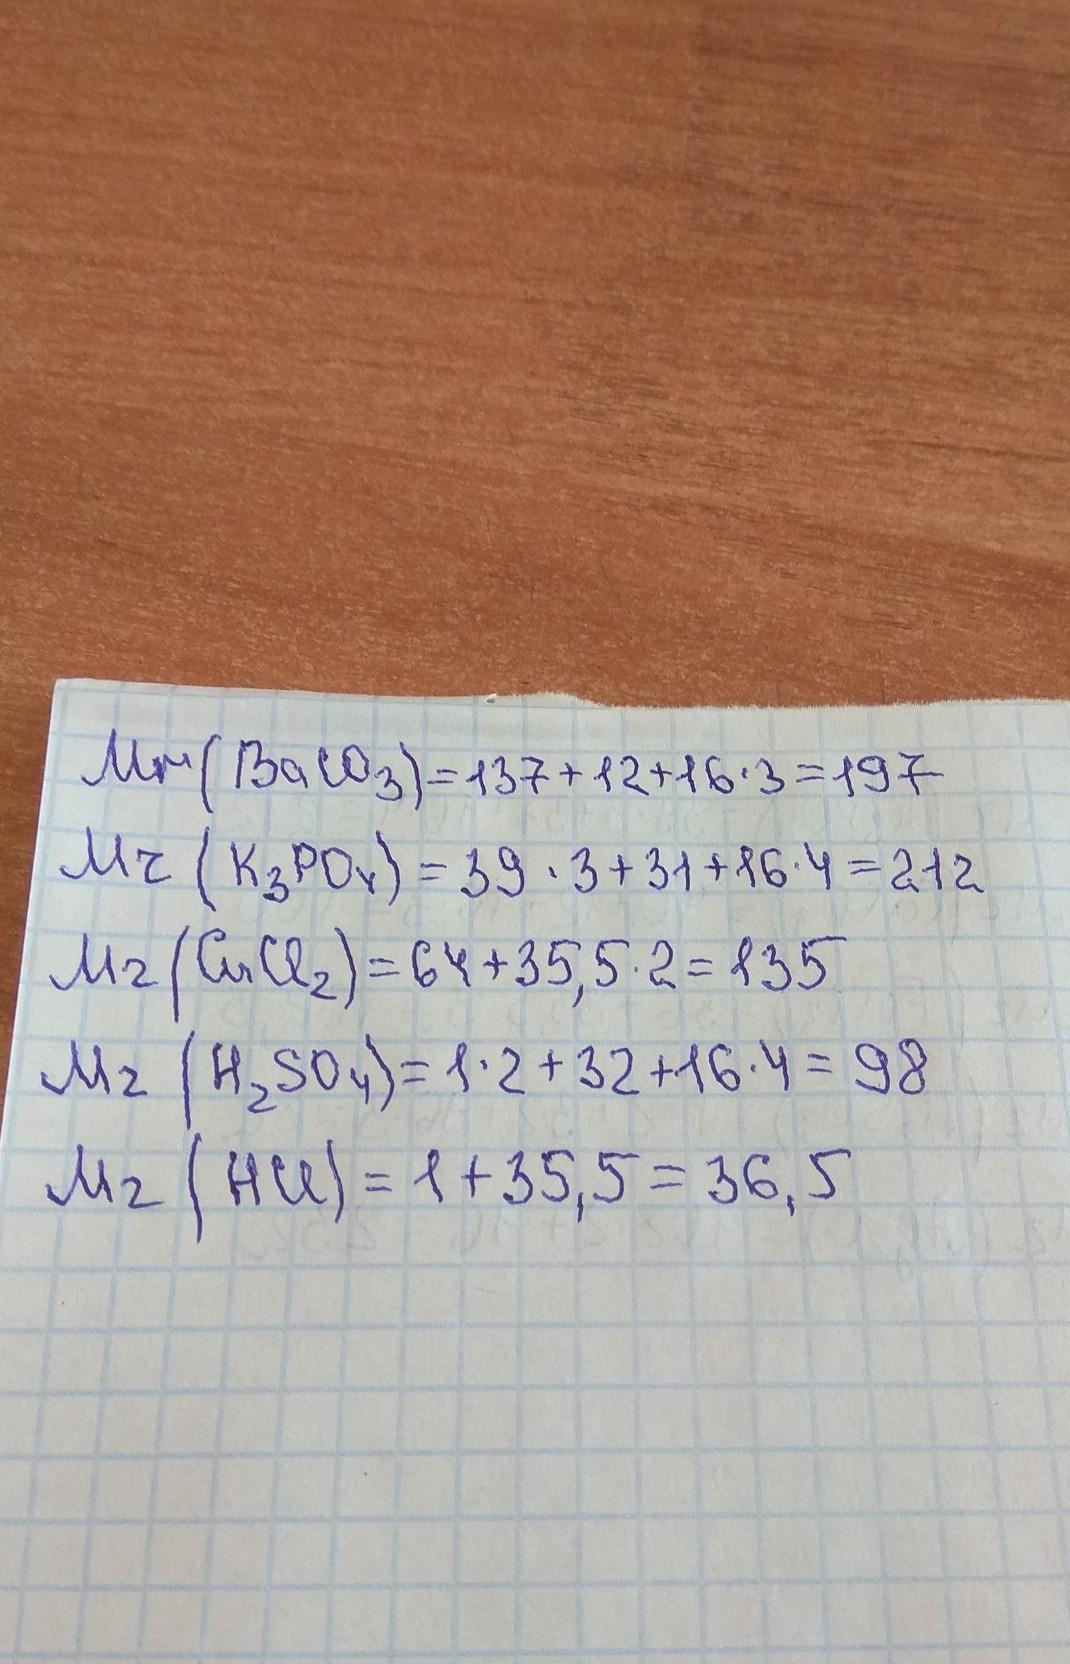 Mr (BaCO₃) = 137 + 12 + 16 · 3 = 197
Mr (K₃PO₄) = 39 · 3 + 31 + 16 · 4 = 212
Mr (CuCl₂) = 64 + 35,5 · 2 = 135
Mr (H₂SO₄) = 1 · 2 + 32 + 16 · 4 = 98
Mr (HCl) = 1 + 35,5 = 36,5